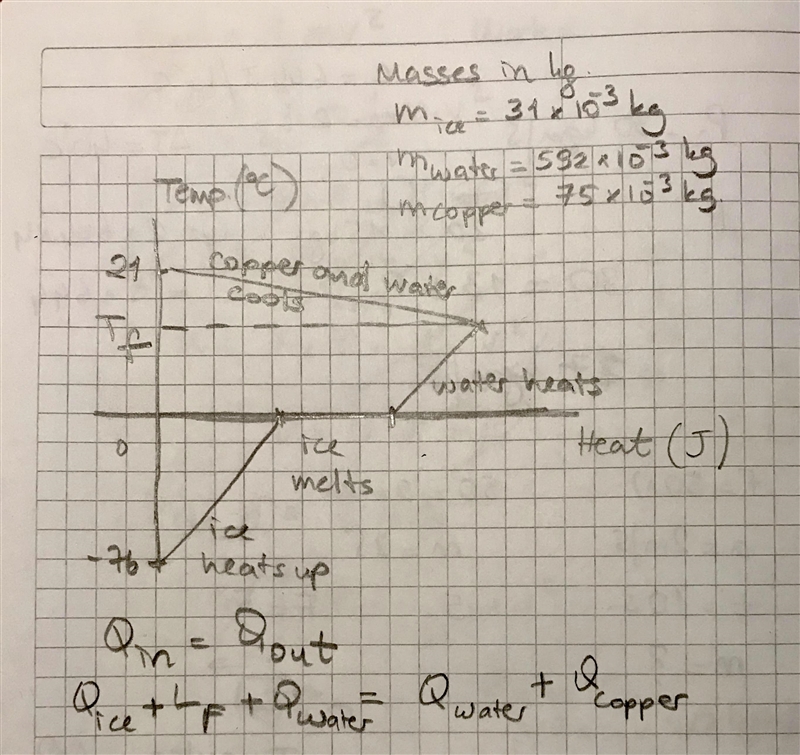 Masses in kg.
m ice = 31 × 10⁻³ kg
m water = 592 × 10⁻³ kg
Temp. (°C)
m copper = 75 × 10⁻³ kg
21
copper and water
cools
T f
water heats
0
ice
melts
Heat (J)
ice
-76
heats up
Q in = Q out
Q ice + L F + Q water = Q water + Q copper